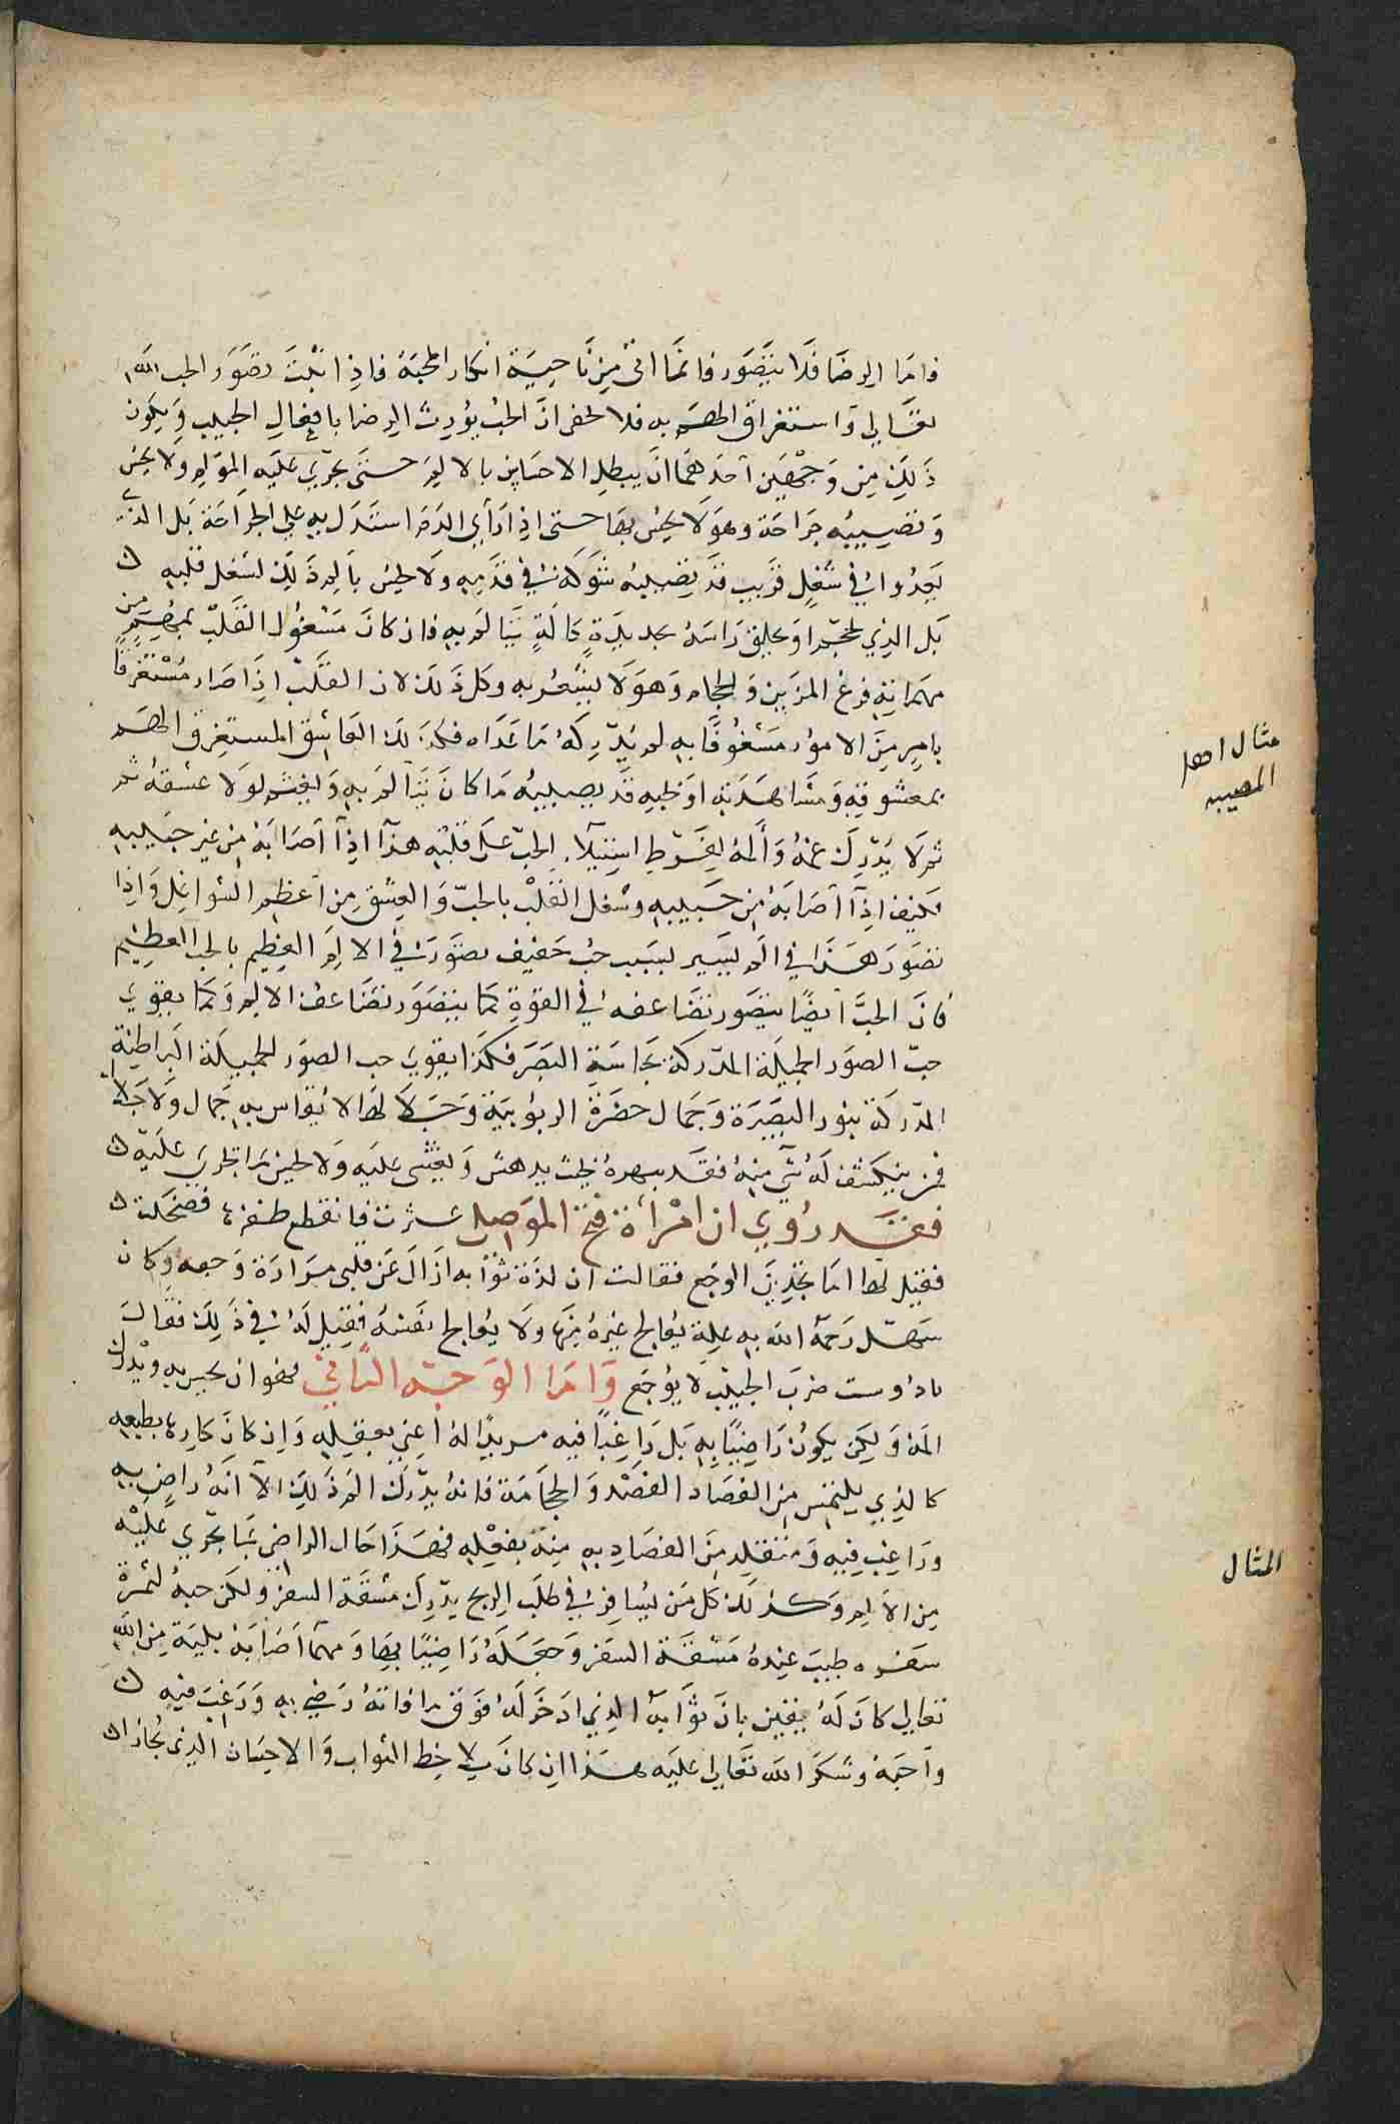 فاما الرضا فلا يتصور فانما اتى من ناحية انكار المحبة فاذا ثبت تصور الحب لله
تعالى واستغراق الهم به فلا يخفى ان الحب يورث الرضا بافعال الحبيب ويكون
ذلك من وجهين احدهما ان يبطل الاحساس بالالم حتى يجري عليه المولم ولا يحس
وتصيبه جراحة وهو لا يحس بها حتى اذا راى الدم استدل به على الجراحة بل الذي
يعدوا في شغل قريب قد تصيبه شوكة في قدمه ولا يحس بالم ذلك لشغل قلبه
بل الذي يحجم او يحلق راسه بحديدة كالة يتالم به فان كان مشغول القلب بمهم من
مهماته فرغ المزين والحجام وهو لا يشعر به وكل ذلك لان القلب اذا صار مستغرقا
بامر من الامور مشغوفا به لم يدرك ما عداه فكذلك العاشق المستغرق الهم
بمعشوقه ومشاهدته او بحبه قد يصيبه ما كان يتالم به ويغتم لولا عشقه ثم
ثم لا يدرك غمه والمه لفرط استيلاء الحب على قلبه هذا اذا اصابه من غير حبيبه
فكيف اذا اصابه من حبيبه وشغل القلب بالحب والعشق من اعظم الشواغل واذا
تصور هذا في الم يسير بسبب حب خفيف تصور في الالم العظيم بالحب العظيم
فان الحب ايضا يتصور تضاعفه في القوة كما يتصور تضاعف الالم وكما يقوي
حب الصور الجميلة المدركة بحاسة البصر فكذا يقوي حب الصور الجميلة الباطنة
المدركة بنور البصيرة وجمال حضرة الربوبية وجلالها لا يقاس به جمال ولا جلال
فمن ينكشف له شي منه فقد يبهره بحيث يدهش ويغشى عليه ولا يحس بما يجري عليه
فقد روي ان امراة فتح الموصلي عثرت فانقطع ظفرها فضحكت
فقيل لها اما تجدين الوجع فقالت ان لذة ثوابه ازال عن قلبي مرارة وجعه وكان
سهل رحمه الله به علة يعالج غيره منها ولا يعالج نفسه فقيل له في ذلك فقال
يا دوست ضرب الحبيب لا يوجع واما الوجه الثاني فهو ان يحس به ويدرك
المه ولكن يكون راضيا به بل راغبا فيه مريدا له اعني بعقله وان كان كارها بطبعه
كالذي يلتمس من الفصاد الفصد والحجامة فانه يدرك الم ذلك الا انه راض به
وراغب فيه ومتقلد من الفصاد به منة بفعله فهذا حال الراضي بما يجري عليه
من الالم وكذلك كل من يسافر في طلب الربح يدرك مشقة السفر ولكن حبه لثمرة
سفره طيب عنده مشقة السفر وجعله راضيا بها ومهما اصابه بلية من الله
تعالى كان له يقين بان ثوابه الذي ادخر له فوق ما فاته رضي به ورغب فيه
واحبه وشكر الله تعالى عليه هذا ان كان يلاحظ الثواب والاحسان الذي يجازا
مثال اهل
المصيبه
المثال